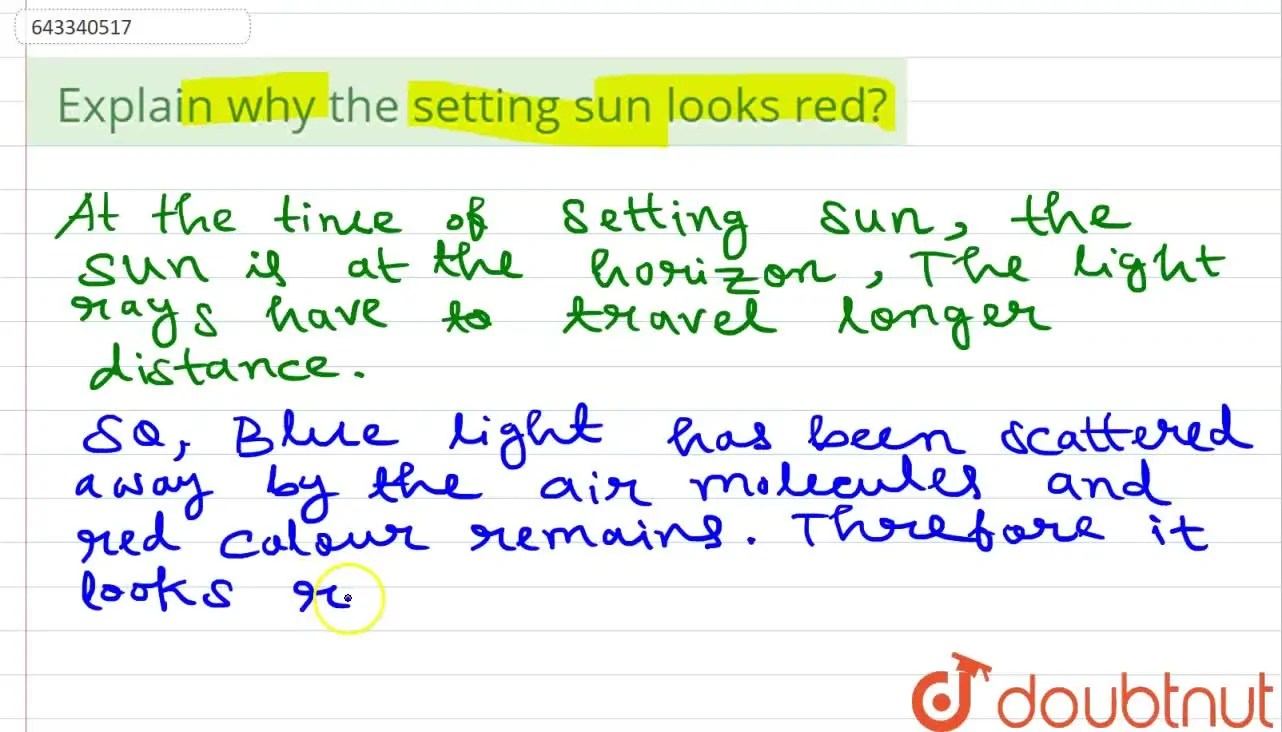 643340517
Explain why the setting sun looks red?
At the time of setting sun, the
sun is at the horizon, The light
rays have to travel longer
distance.
So, Blue light has been scattered
away by the air molecules and
red colour remains. Threfore it
looks r
doubtnut